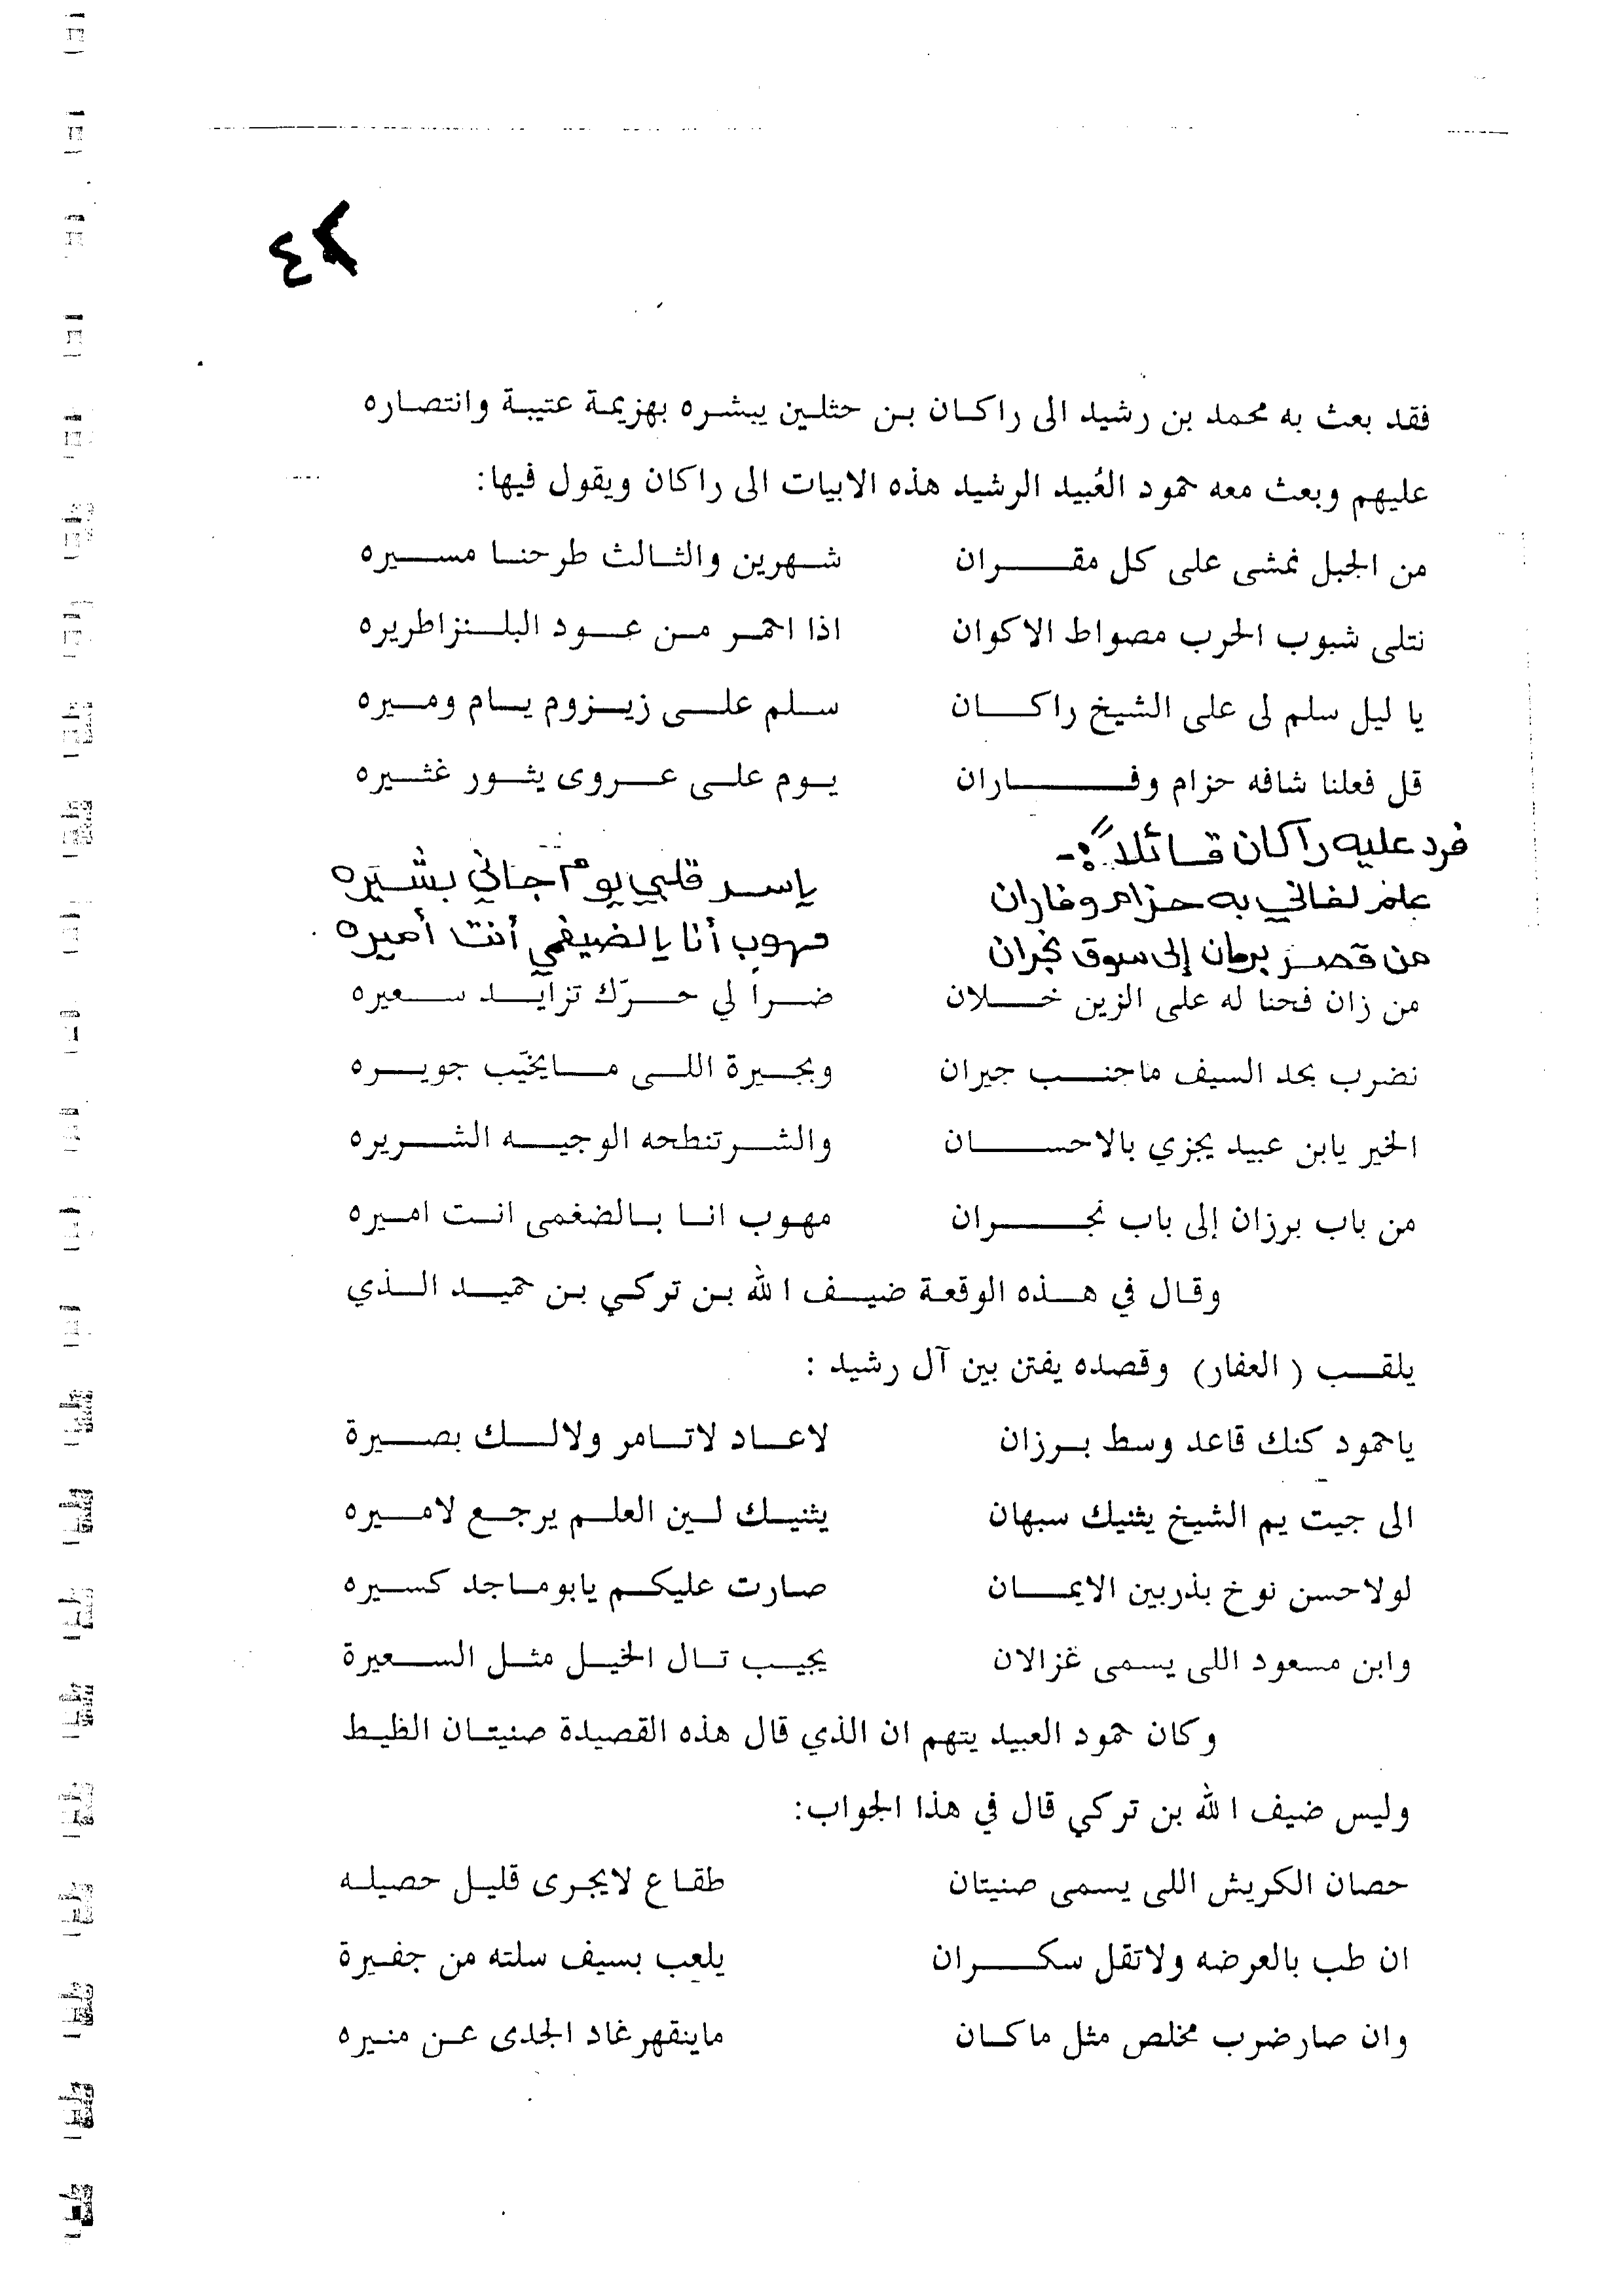 ٤٢
فقد بعث به محمد بن رشيد الى راكان بن حثلين يبشره بهزيمة عتيبة وانتصاره
عليهم وبعث معه حمود العُبيد الرشيد هذه الابيات الى راكان ويقول فيها:
من الجبل نمشى على كل مقران شهرين والثالث طرحنا مسيره
نتلى شبوب الحرب مصواط الاكوان اذا احمر من عود البلنزاطريره
يا ليل سلم لى على الشيخ راكان سلم على زيزوم يام وميره
قل فعلنا شافه حزام وفاران يوم على عروى يثور غثيره
فرد عليه راكان قائلاً :-
علم لفاني به حزام وفاران ياسر قلبي يوم جاني بشيره
من قصر برزان إلى سوق نجران مهوب أنا يالضيغمي أنت أميره
من زان فحنا له على الزين خلان ضراً لي حرّك تزايد سعيره
نضرب بحد السيف ماجنب جيران وبجيرة اللى مايخيّب جويره
الخير يابن عبيد يجزي بالاحسان والشر تنطحه الوجيه الشريره
من باب برزان إلى باب نجران مهوب انا بالضغمى انت اميره
وقال في هذه الوقعة ضيف الله بن تركي بن حميد الذي
يلقب (العفار) وقصده يفتن بين آل رشيد :
ياحمود كنك قاعد وسط برزان لاعاد لاتامر ولالك بصيرة
الى جيت يم الشيخ يثنيك سبهان يثنيك لين العلم يرجع لاميره
لولاحسن نوخ بذربين الايمان صارت عليكم يابوماجد كسيره
وابن مسعود اللى يسمى غزالان يجيب تال الخيل مثل السعيرة
وكان حمود العبيد يتهم ان الذي قال هذه القصيدة صنيتان الظيط
وليس ضيف الله بن تركي قال في هذا الجواب:
حصان الكريش اللى يسمى صنيتان طقاع لايجرى قليل حصيله
ان طب بالعرضه ولاتقل سكران يلعب بسيف سلته من جفيرة
وان صارضرب مخلص مثل ماكان ماينقهرغاد الجدى عن منيره